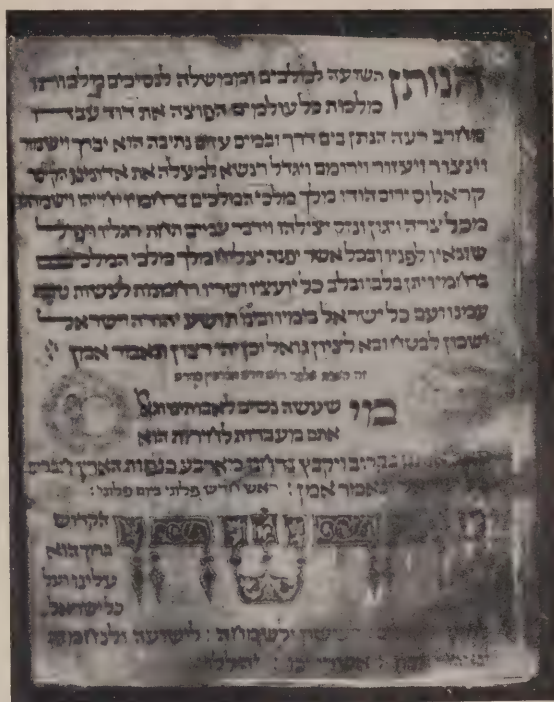 הנותן תשועה למלכים וממשלה לנסיכים מלכותו
מלכות כל עולמים הפוצה את דוד עבדו
מחרב רעה הנתן בים דרך ובמים עזים נתיבה הוא יברך וישמור
וינצור ויעזור וירומם ויגדל וינשא למעלה את אדונינו הקיסר
קראלוס ירום הודו מלך מלכי המלכים ברחמיו יחייהו וישמרהו
מכל צרה ויגון ונזק יצילהו וידבר עמים תחת רגליו ויפיל
שונאיו לפניו ובכל אשר יפנה יצליח מלך מלכי המלכים
ברחמיו יתן בלבו ובלב כל יועציו ושריו רחמנות לעשות טובה
עמנו ועם כל ישראל בימיו ובימנו תושע יהודה וישראל
ישכון לבטח ובא לציון גואל וכן יהי רצון ונאמר אמן :
מי שעשה נסים לאבותינו וגאל
אתם מעבדות לחירות הוא
בקרוב ויקבץ נדחינו מארבע כנפות הארץ חברים
ונאמר אמן : ראש חודש פלוני ביום פלוני :
יחדשהו הקדוש
ברוך הוא
עלינו ועל
כל ישראל
לששון ולשמחה : לישועה ולנחמה